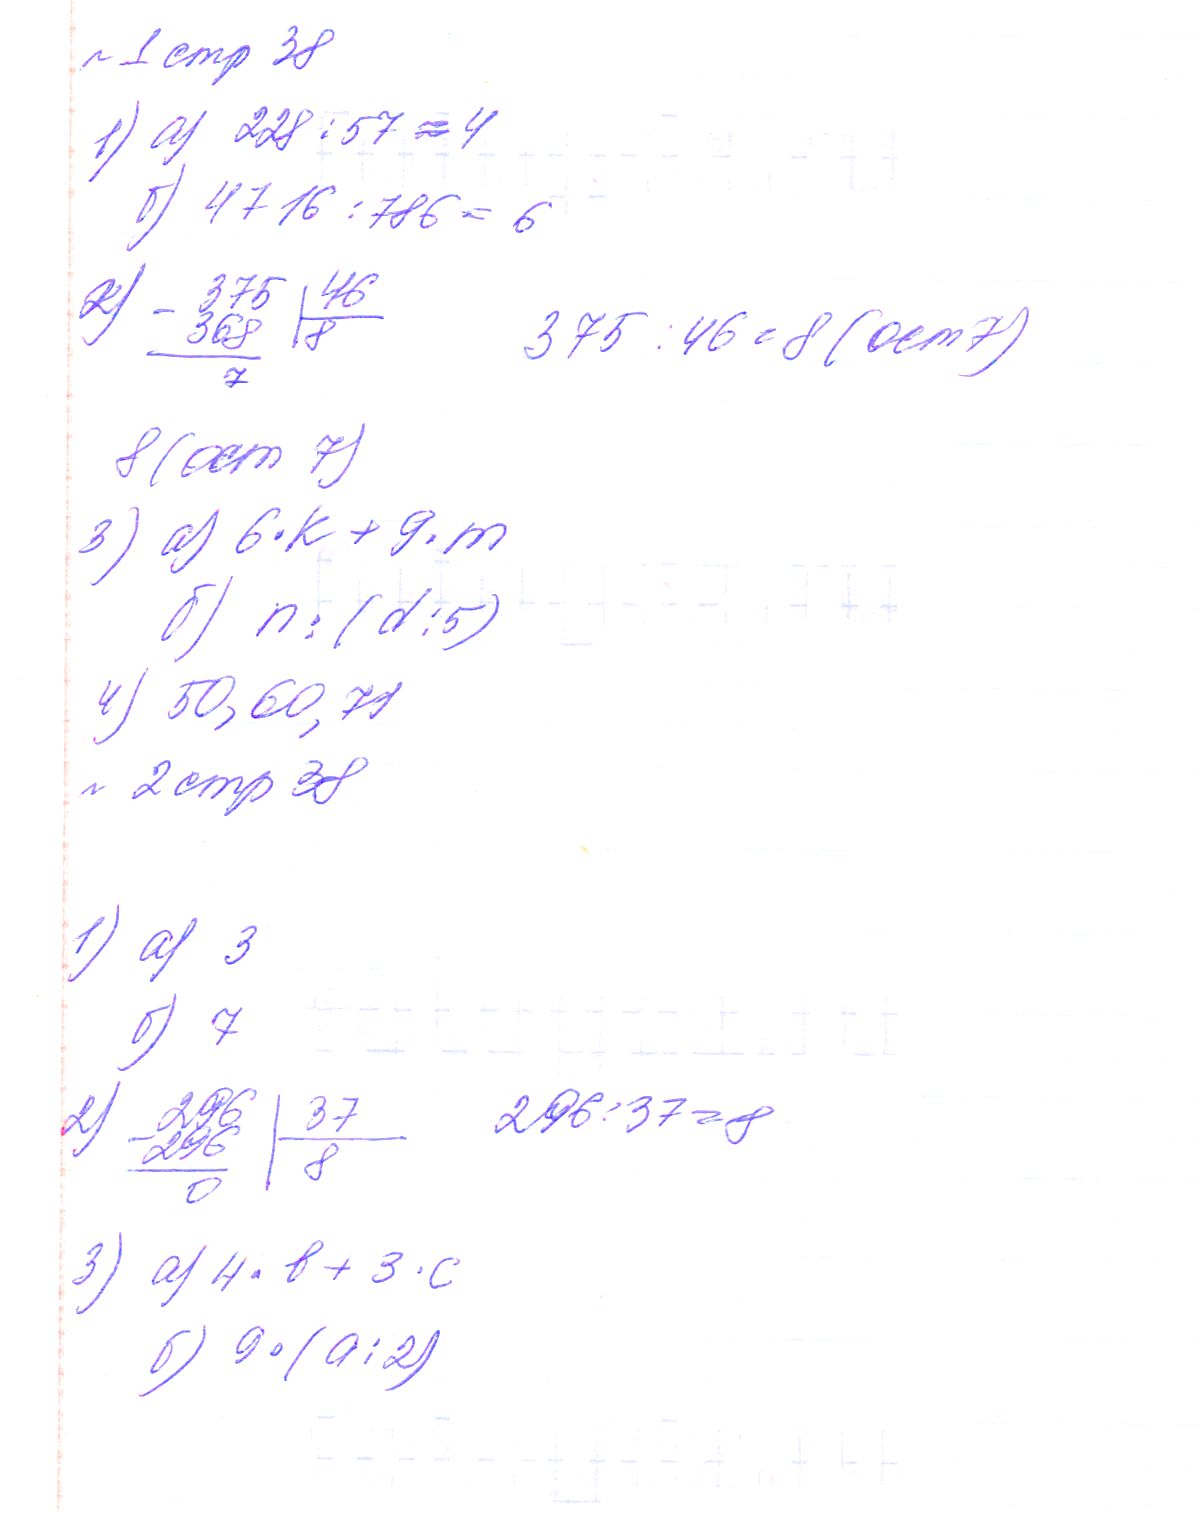 ~ 1 стр 38
1) а) 228 : 57 = 4
б) 4716 : 786 = 6
2) - 375 | 46
368 | 8
7
375 : 46 = 8 (ост 7)
8 (ост 7)
3) а) 6 · k + 9 · m
б) n : (d : 5)
4) 50, 60, 71
~ 2 стр 38
1) а) 3
б) 7
2) - 296 | 37
296 | 8
0
296 : 37 = 8
3) а) 4 · b + 3 · c
б) 9 · (a : 2)